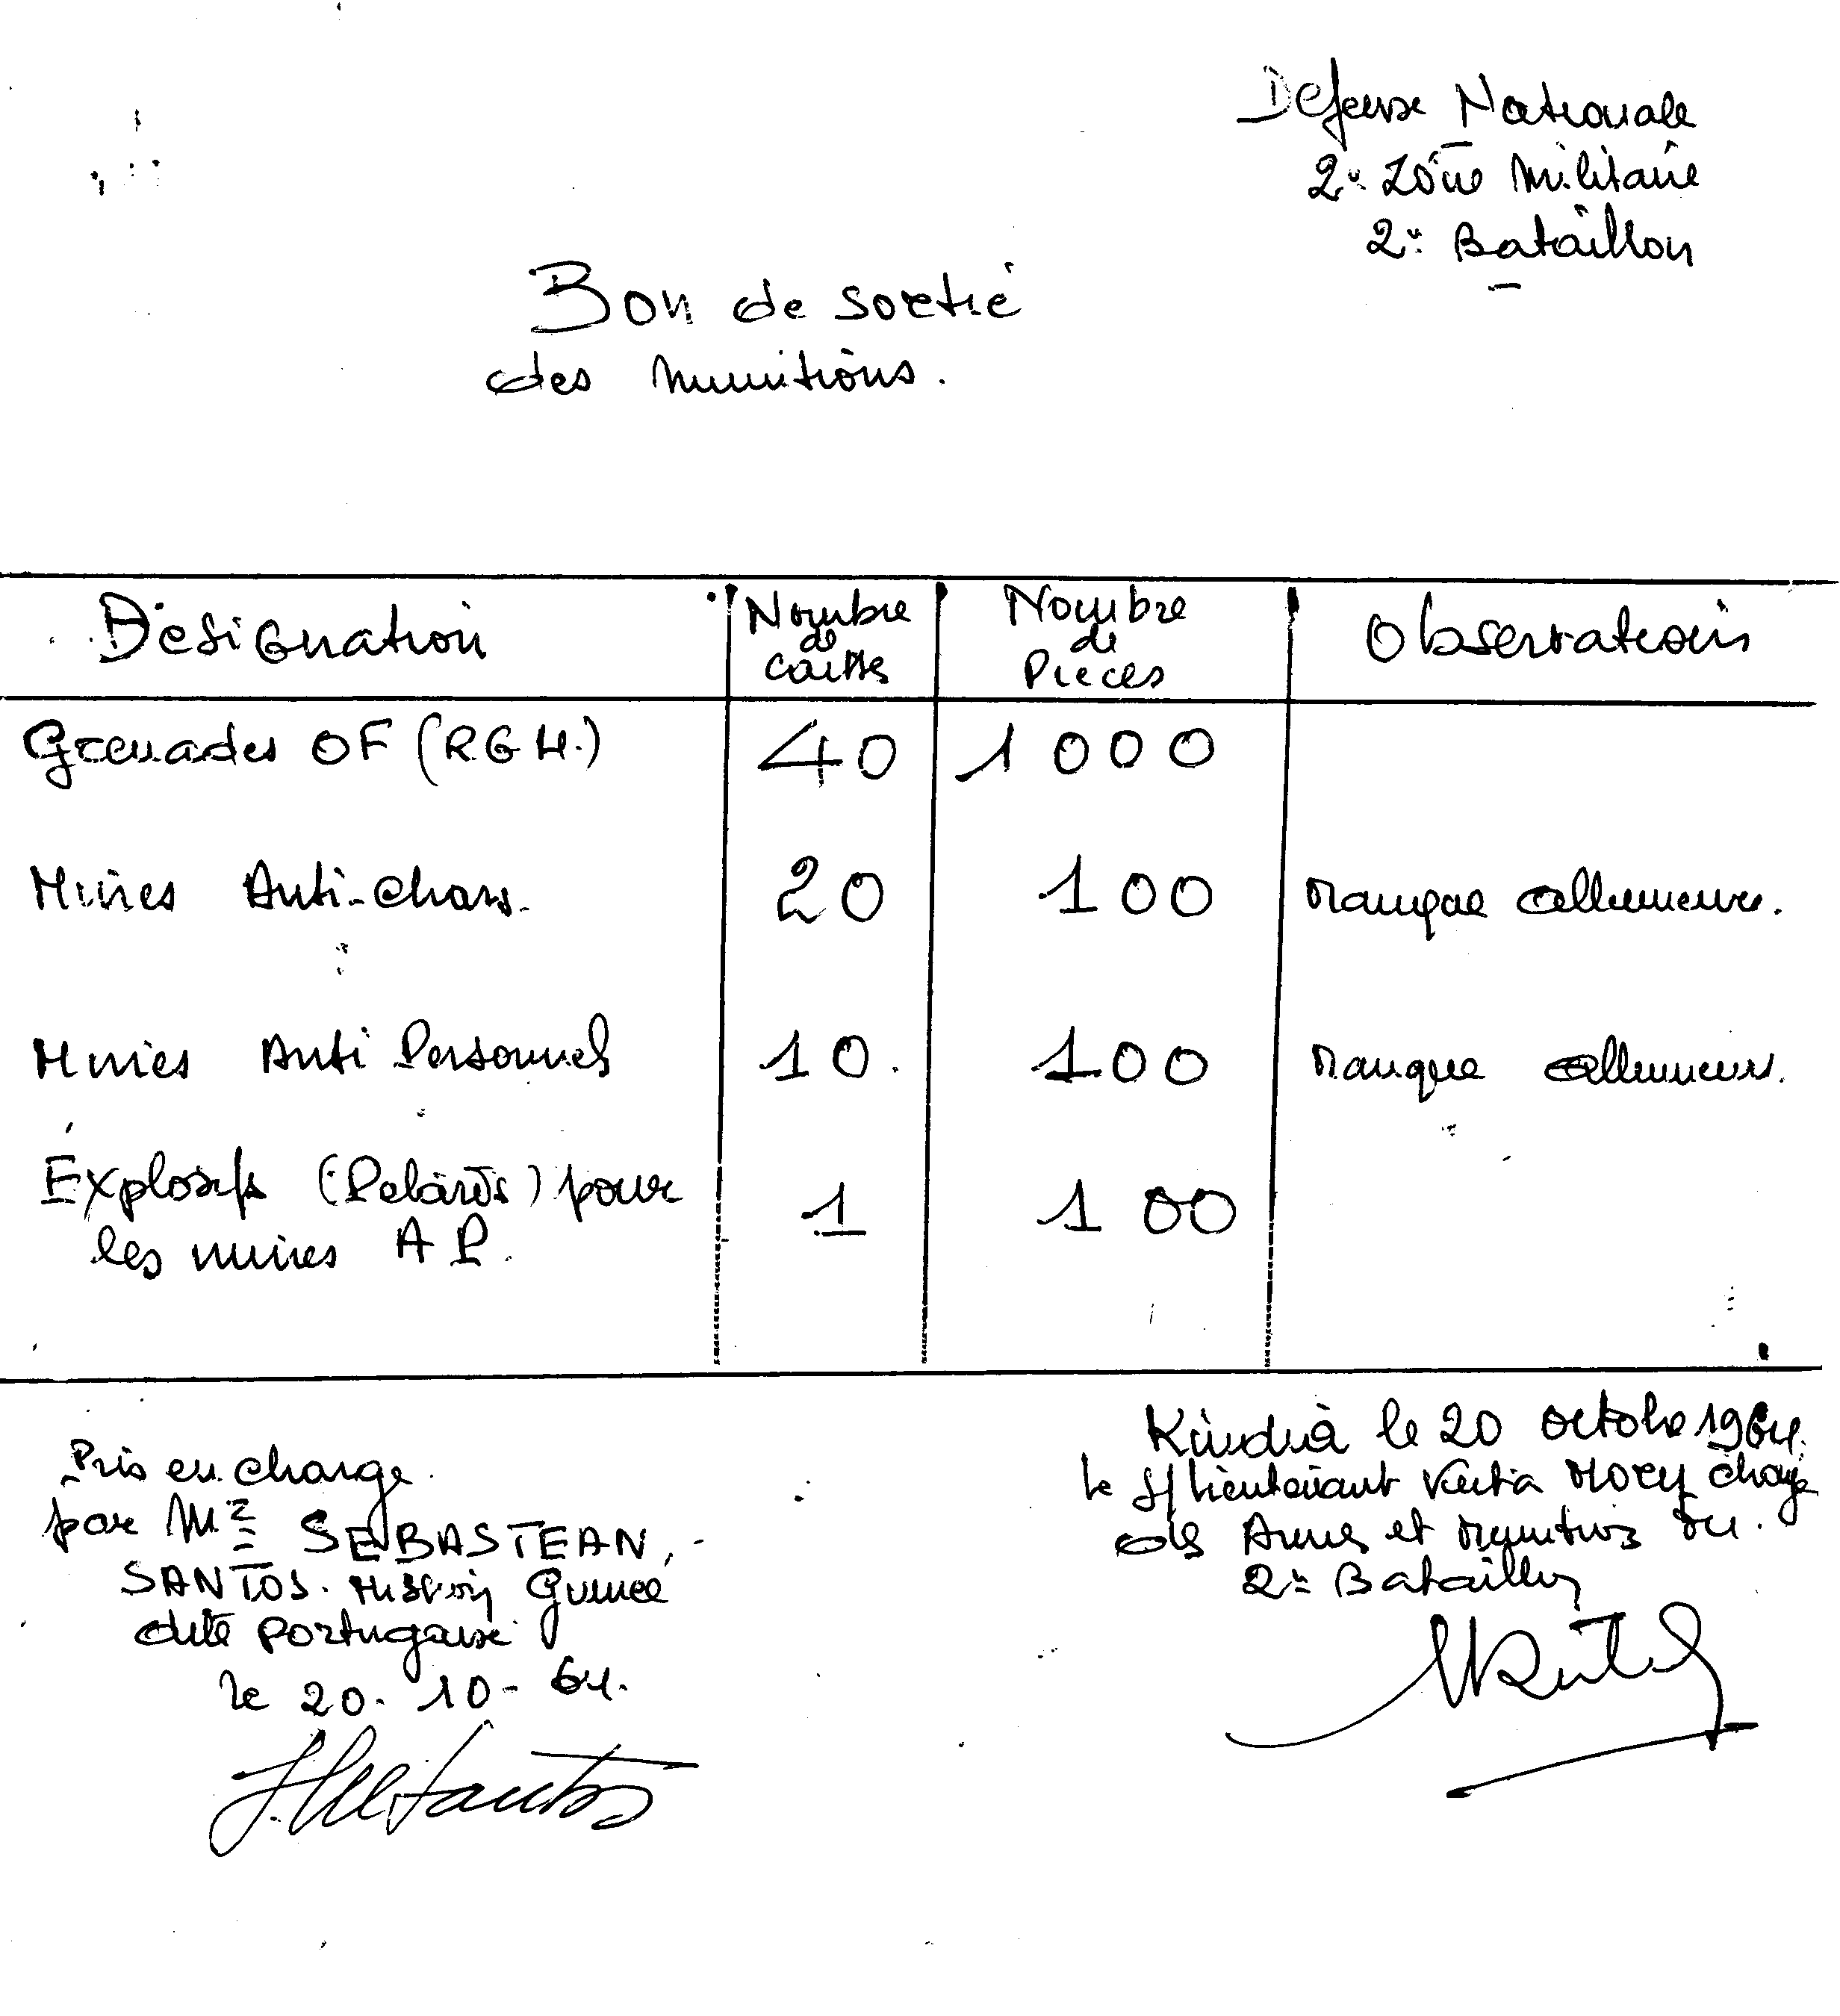 Défense Nationale
2e Zône Militaire
2e Bataillon
Bon de sortie
des munitions.
Désignation
Nombre
de
caisses
Nombre
de
Pièces
Observations
Grenades OF (RGH.) 40 1000
Mines Anti-chars. 20 100 Manque allumeurs.
Mines Anti Personnels 10. 100 Manque allumeurs.
Explosifs (Pétards) pour
les mines A P. 1 100
Pris en charge
par Mr SEBASTEAN,
SANTOS. Mission Guinée
dite Portugaise
le 20. 10 - 64.
Kindia le 20 octobre 1964.
le s/lieutenant Keita Mory chargé
des Armes et Munitions du.
2e Bataillon